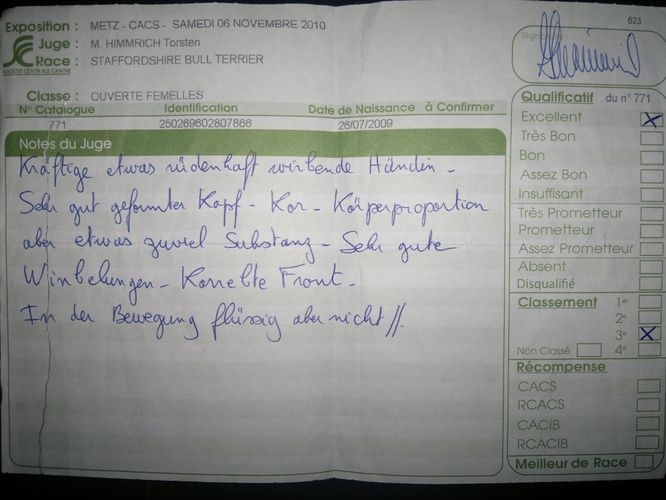 Exposition : METZ - CACS - SAMEDI 06 NOVEMBRE 2010
Juge : M. HIMMRICH Torsten
Race : STAFFORDSHIRE BULL TERRIER
SOCIETE CENTRALE CANINE
623
Signature
Classe : OUVERTE FEMELLES
N° Catalogue Identification Date de Naissance à Confirmer
771 250269602807866 26/07/2009
Notes du Juge
Kräftige etwas rüdenhaft wirkende Hündin -
Sehr gut geformter Kopf - Kor - Körperproportion
aber etwas zuviel Substanz - Sehr gute
Winkelungen - Korrekte Front -
In der Bewegung flüssig aber nicht //.
Qualificatif du n° 771
Excellent X
Très Bon
Bon
Assez Bon
Insuffisant
Très Prometteur
Prometteur
Assez Prometteur
Absent
Disqualifié
Classement 1er
2e
3e X
Non Classé 4e
Récompense
CACS
RCACS
CACIB
RCACIB
Meilleur de Race